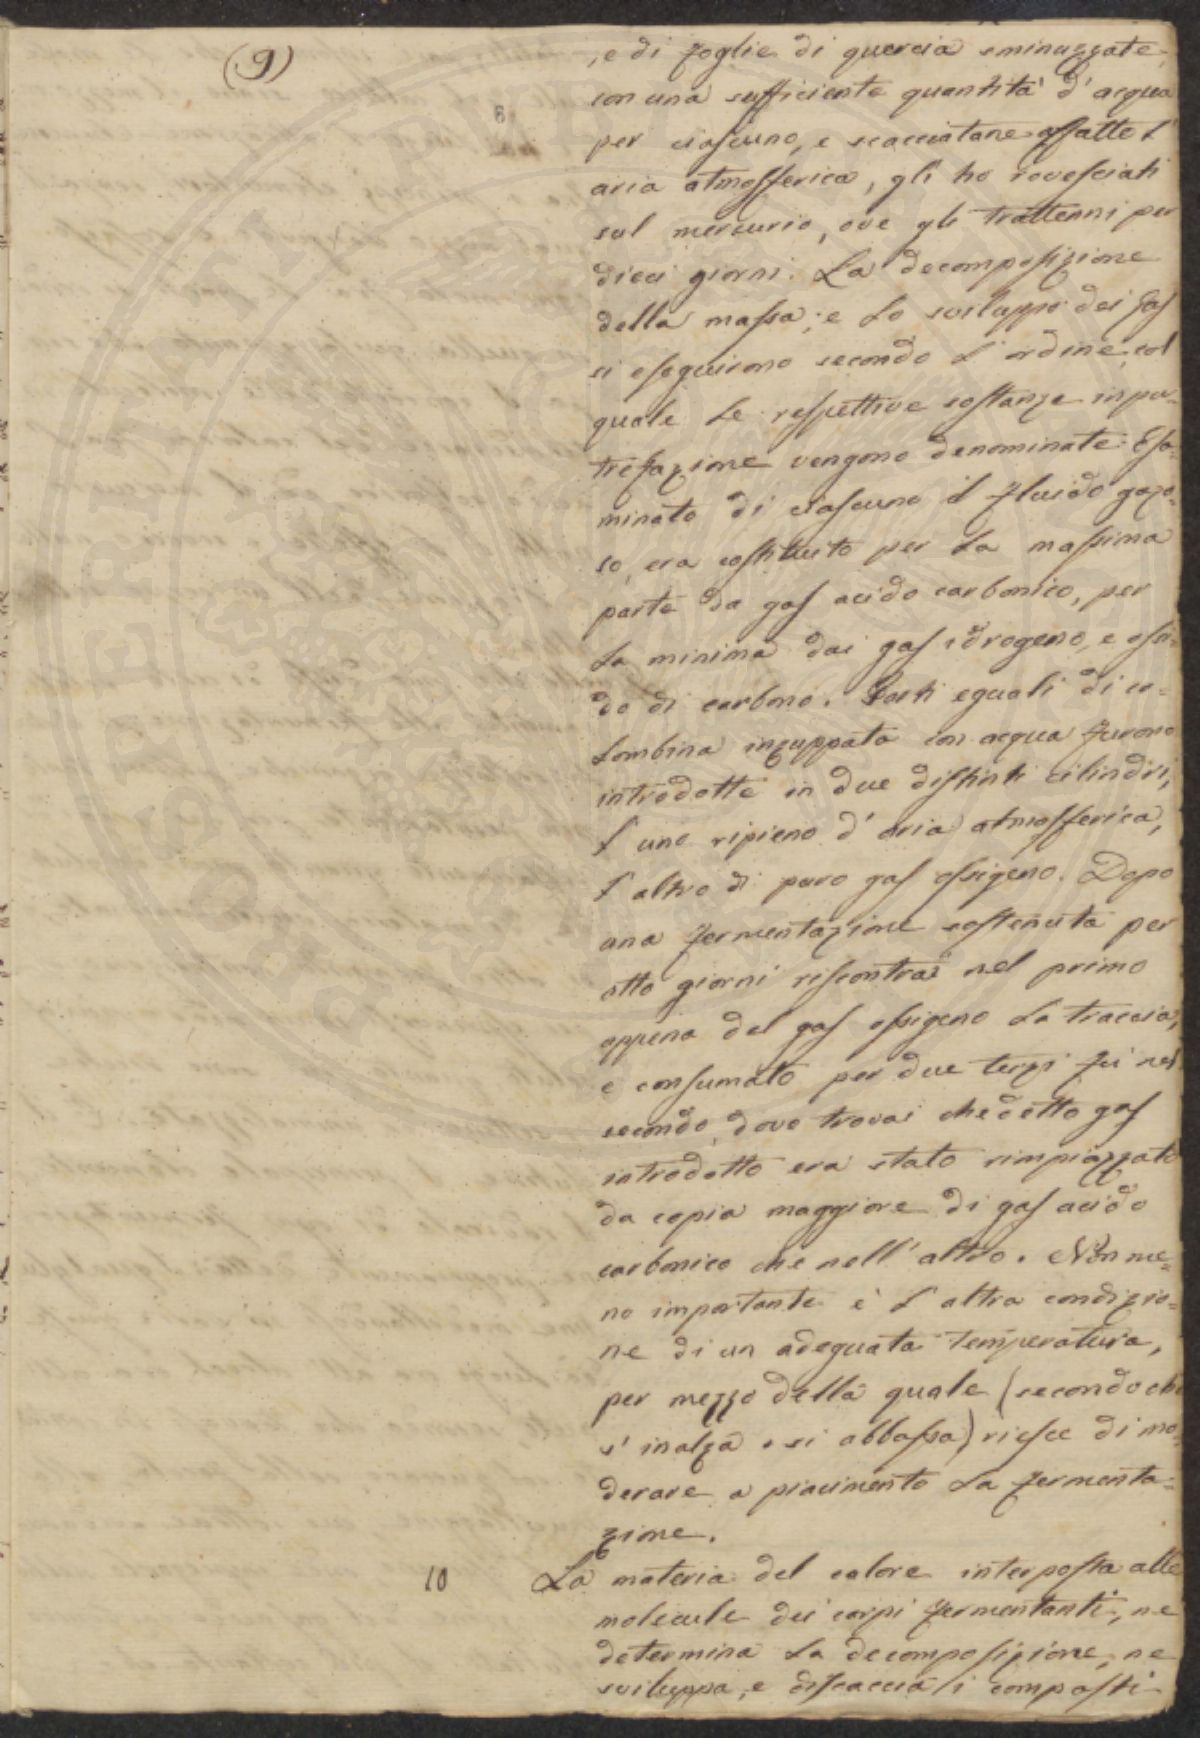 (9)
, e di foglie di quercia sminuzzate,
con una sufficiente quantità d'acqua
per ciascuno, e scacciatane affatto l'
aria atmosferica, gli ho rovesciati
sul mercurio, ove gli trattenni per
dieci giorni. La decomposizione
della massa, e lo sviluppo dei gas
si eseguirono secondo l'ordine, col
quale le respettive sostanze in pu-
trefazione vengono denominate. Esa-
minato di ciascuno il fluido gazo-
so, era costituito per la massima
parte da gas acido carbonico, per
la minima dai gas idrogeno, e ossi-
do di carbono. Parti eguali di co-
lombina inzuppata con acqua furono
introdotte in due distinti cilindri,
l'uno ripieno d'aria atmosferica,
l'altro di puro gas ossigeno. Dopo
una fermentazione sostenuta per
otto giorni riscontrai nel primo
appena del gas ossigeno la traccia,
e consumato per due terzi fu nel
secondo, dove trovai che detto gas
introdotto era stato rimpiazzato
da copia maggiore di gas acido
carbonico che nell'altro. Non me-
no importante è l'altra condizio-
ne di un adeguata temperatura,
per mezzo della quale (secondo che
s'inalza o si abbassa) riesce di mo-
derare a piacimento la fermenta-
zione.
10 La materia del calore interposta alle
molecule dei corpi fermentanti, ne
determina la decomposizione, ne
sviluppa, e discaccia i composti